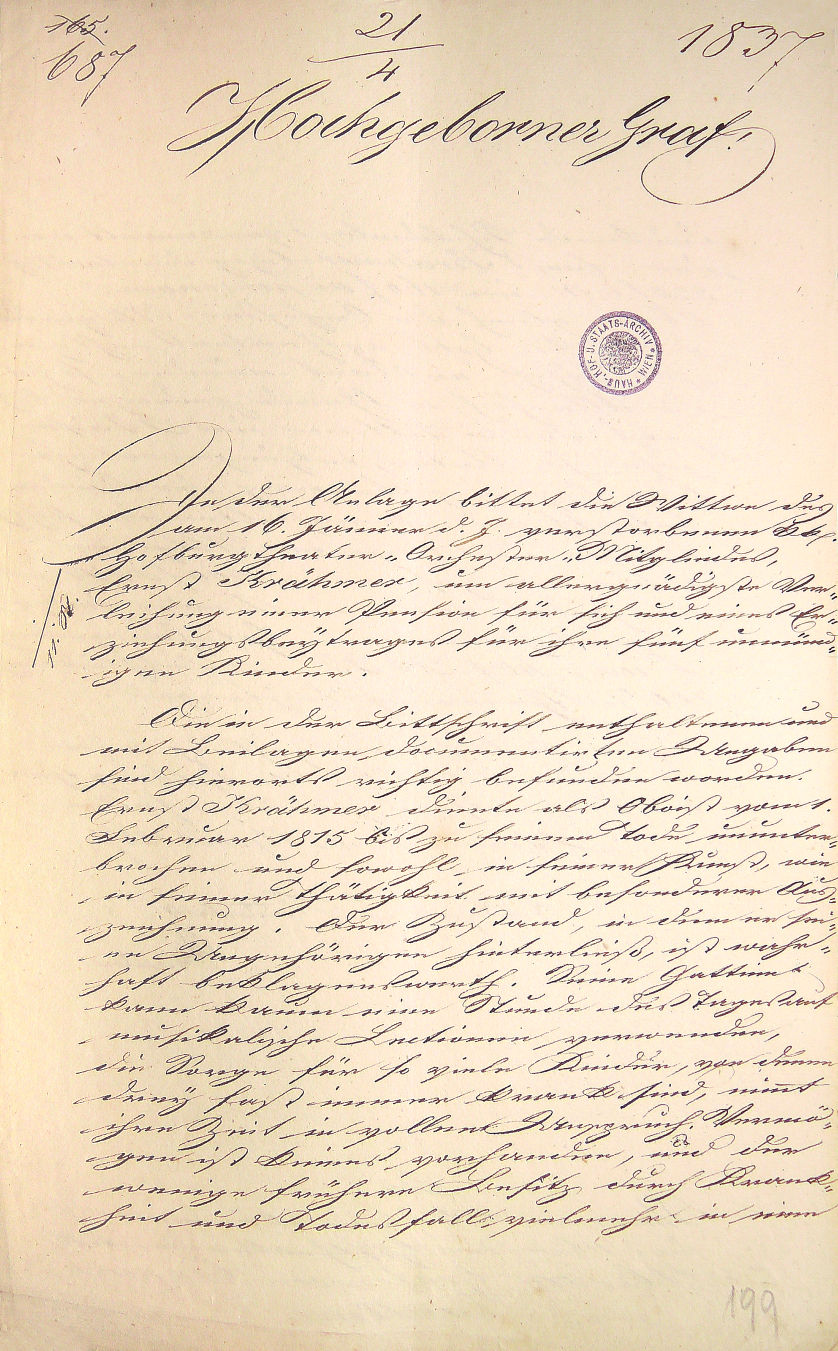 165.
687
21
4
1837
Hochgeborner Graf!
HAUS-, HOF- U. STAATS-ARCHIV * WIEN *
In der Anlage bittet die Wittwe des
am 16. Jänner d. J. verstorbenen kk.
Hofburgtheater-Orchester-Mitgliedes,
Ernst Krähmer, um allergnädigste Ver-
leihung einer Pension für sich und eines Er-
ziehungsbeytrages für ihre fünf unmünd-
igen Kinder.
Die in der Bittschrift enthaltenen und
mit Beilagen documentirten Angaben
sind hierorts richtig befunden worden.
Ernst Krähmer diente als Oboist vom 1.
Februar 1815 bis zu seinem Tode ununter-
brochen und sowohl in seiner Kunst, wie
in seiner Thätigkeit mit besonderer Aus-
zeichnung. Der Zustand, in dem er sei-
ne Angehörigen hinterließ, ist wahr-
haft beklagenswerth. Seine Gattinn
kann kaum eine Stunde des Tages auf
musikalische Lectionen verwenden,
die Sorge für so viele Kinder, von denen
drey fast immer krank sind, nimt
ihre Zeit in vollen Anspruch. Vermö-
gen ist keines vorhanden, und der
wenige frühere Besitz durch Krank-
heit und Todesfall vielmehr in eine
199